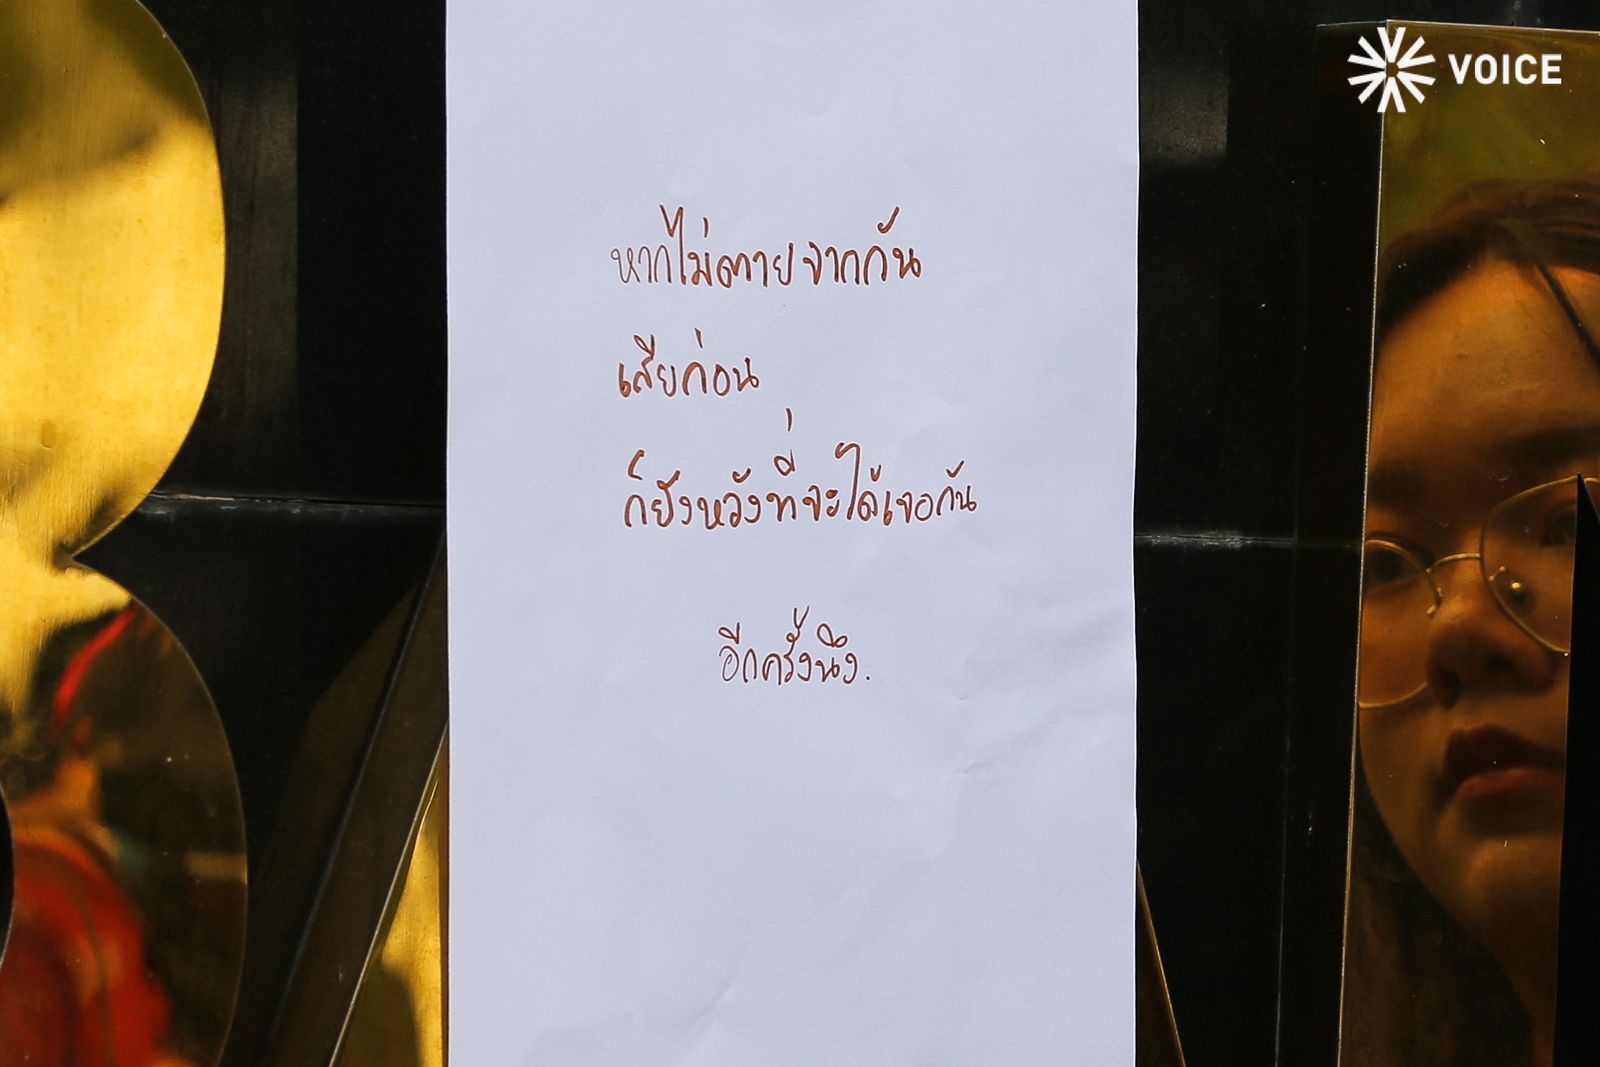 VOICE
หากไม่ตายจากกัน
เสียก่อน
ก็ยังหวังที่จะได้เจอกัน
อีกครั้งนึง.